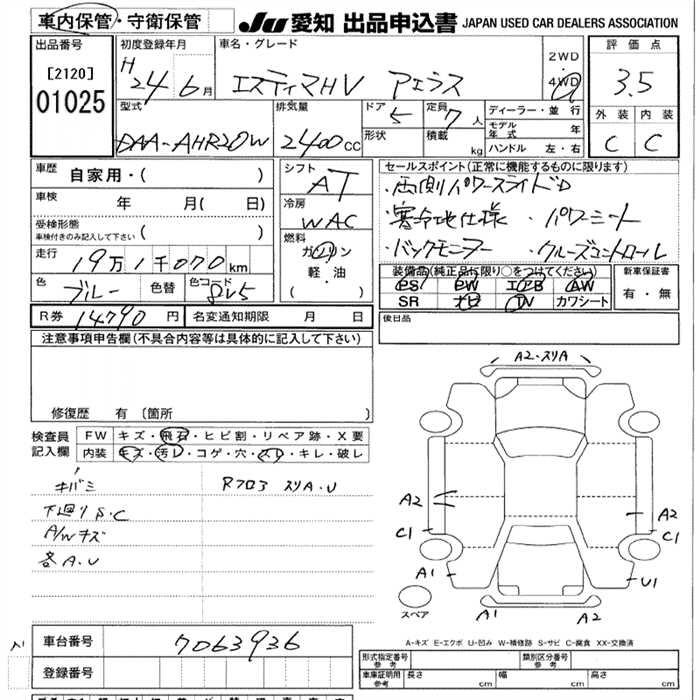 車内保管・守衛保管 JU 愛知 出品申込書 JAPAN USED CAR DEALERS ASSOCIATION
出品番号 初度登録年月 車名・グレード 2WD 評価点
[2120] H 24 6月 エスティマHV アエラス 4WD 3.5
01025 外装 内装
型式 排気量 ドア 5 定員 7人 ディーラー・並行 C C
DAA-AHR20W 2400cc 形状 積載 kg モデル年式 年
ハンドル 左・右
車歴 自家用・( ) シフト AT セールスポイント(正常に機能するものに限ります)
車検 年 月( 日) 冷房 WAC ・両側パワースライドD
受検形態 ・寒冷地仕様 ・パワーシート
車検付きのみ記入して下さい ( ) 燃料 ・バックモニター ・クルーズコントロール
走行 19万1千070km ガソリン
軽・油 装備品(純正品に限り○をつけてください) 新車保証書
色 ブルー 色替 色コード 8V5 ( ・ ) PS PW エアB AW 有・無
SR ナビ TV カワシート
R券 14790円 名変通知期限 月 日 後日品
注意事項申告欄(不具合内容等は具体的に記入して下さい)
修復歴 有 〔箇所 〕
A2・スリA
検査員 FW キズ・飛石・ヒビ割・リペア跡・X要
記入欄 内装 キズ・汚レ・コゲ・穴・スレ・キレ・破レ
キバミ Rフロア スリA.U
下廻りS.C
A/Wキズ
各A.U
A2 A2
C1 C1
A1 U1
スペア A1 A2
A-キズ E-エクボ U-凹み W-補修跡 S-サビ C-腐食 XX-交換済
車台番号 7063936
登録番号
形式指定番号 参考 類別区分番号 参考
車庫証明用 参考 長さ cm 幅 cm 高さ cm